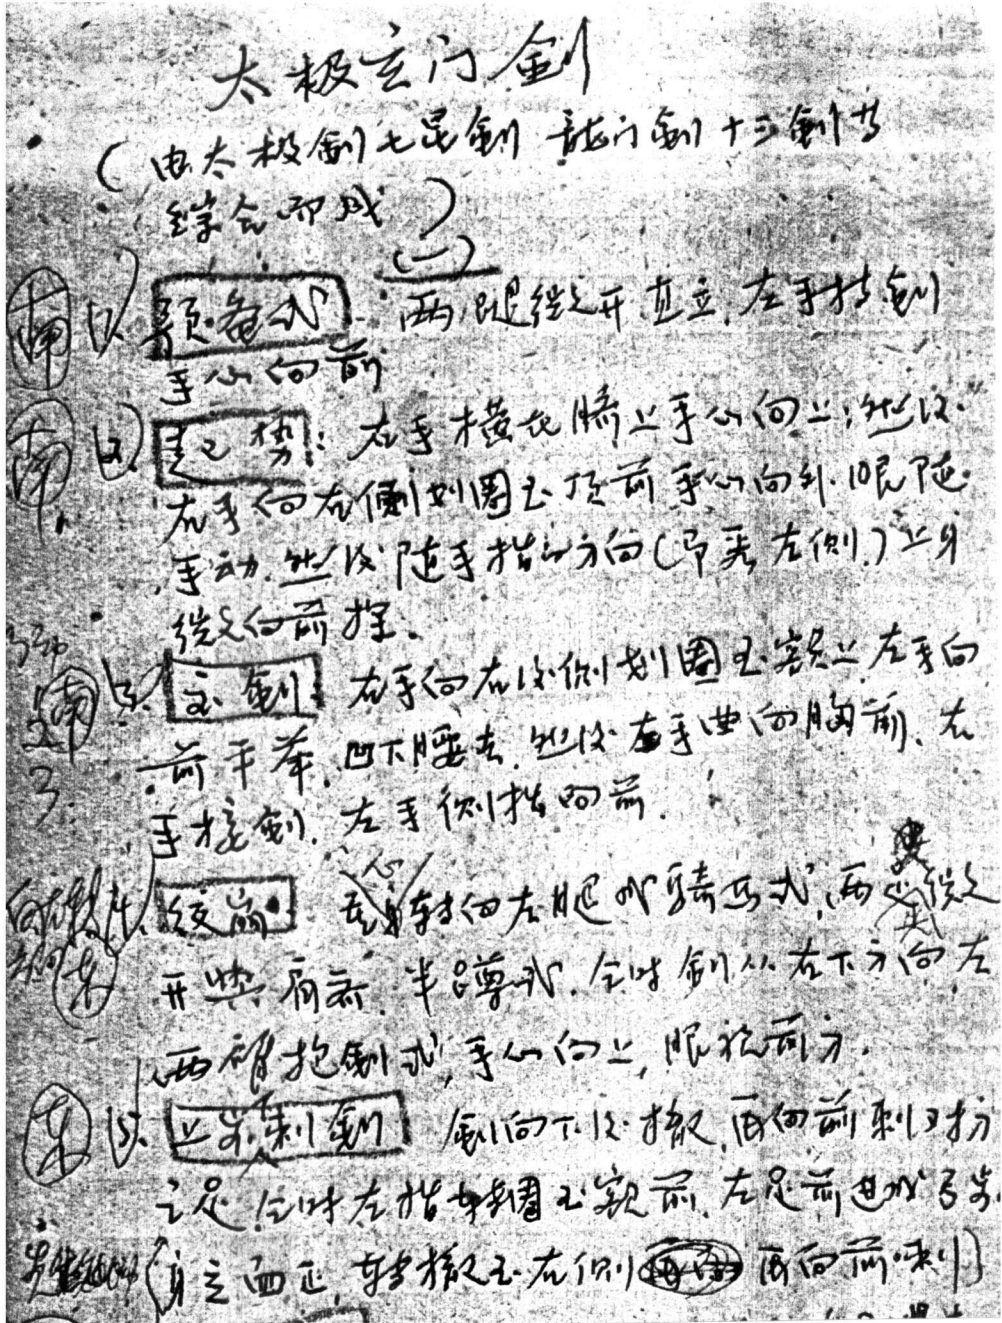 太极玄门劍
(由太极劍七星劍 龙门劍十三劍等
综合而成)
(一)
南 1. 预备式 两腿微开直立,左手持劍
手心向前
南 2. 起势: 右手横在脐上手心向上;然后
右手向右侧划圈至顶前手心向外.眼随
手动.然后随手指的方向(即年左侧)上身
微微向前探.
南 3. 右手向右后侧划圈至额上 左手向
前平举,凹下腰去,然后左手曲向胸前、右
手接劍. 左手侧指向前.
东 4. 转向左腿成骑马式,两 微微
开与肩齐.半蹲式.同时劍从右下方向左
两臂抱劍式,手心向上,眼视前方.
东 5. 上步刺劍 劍向下后撤,再向前刺对方
之足 同时左指转圈至额前、左足前进成弓步
(身立面正,转撤至右侧 再向前刺)